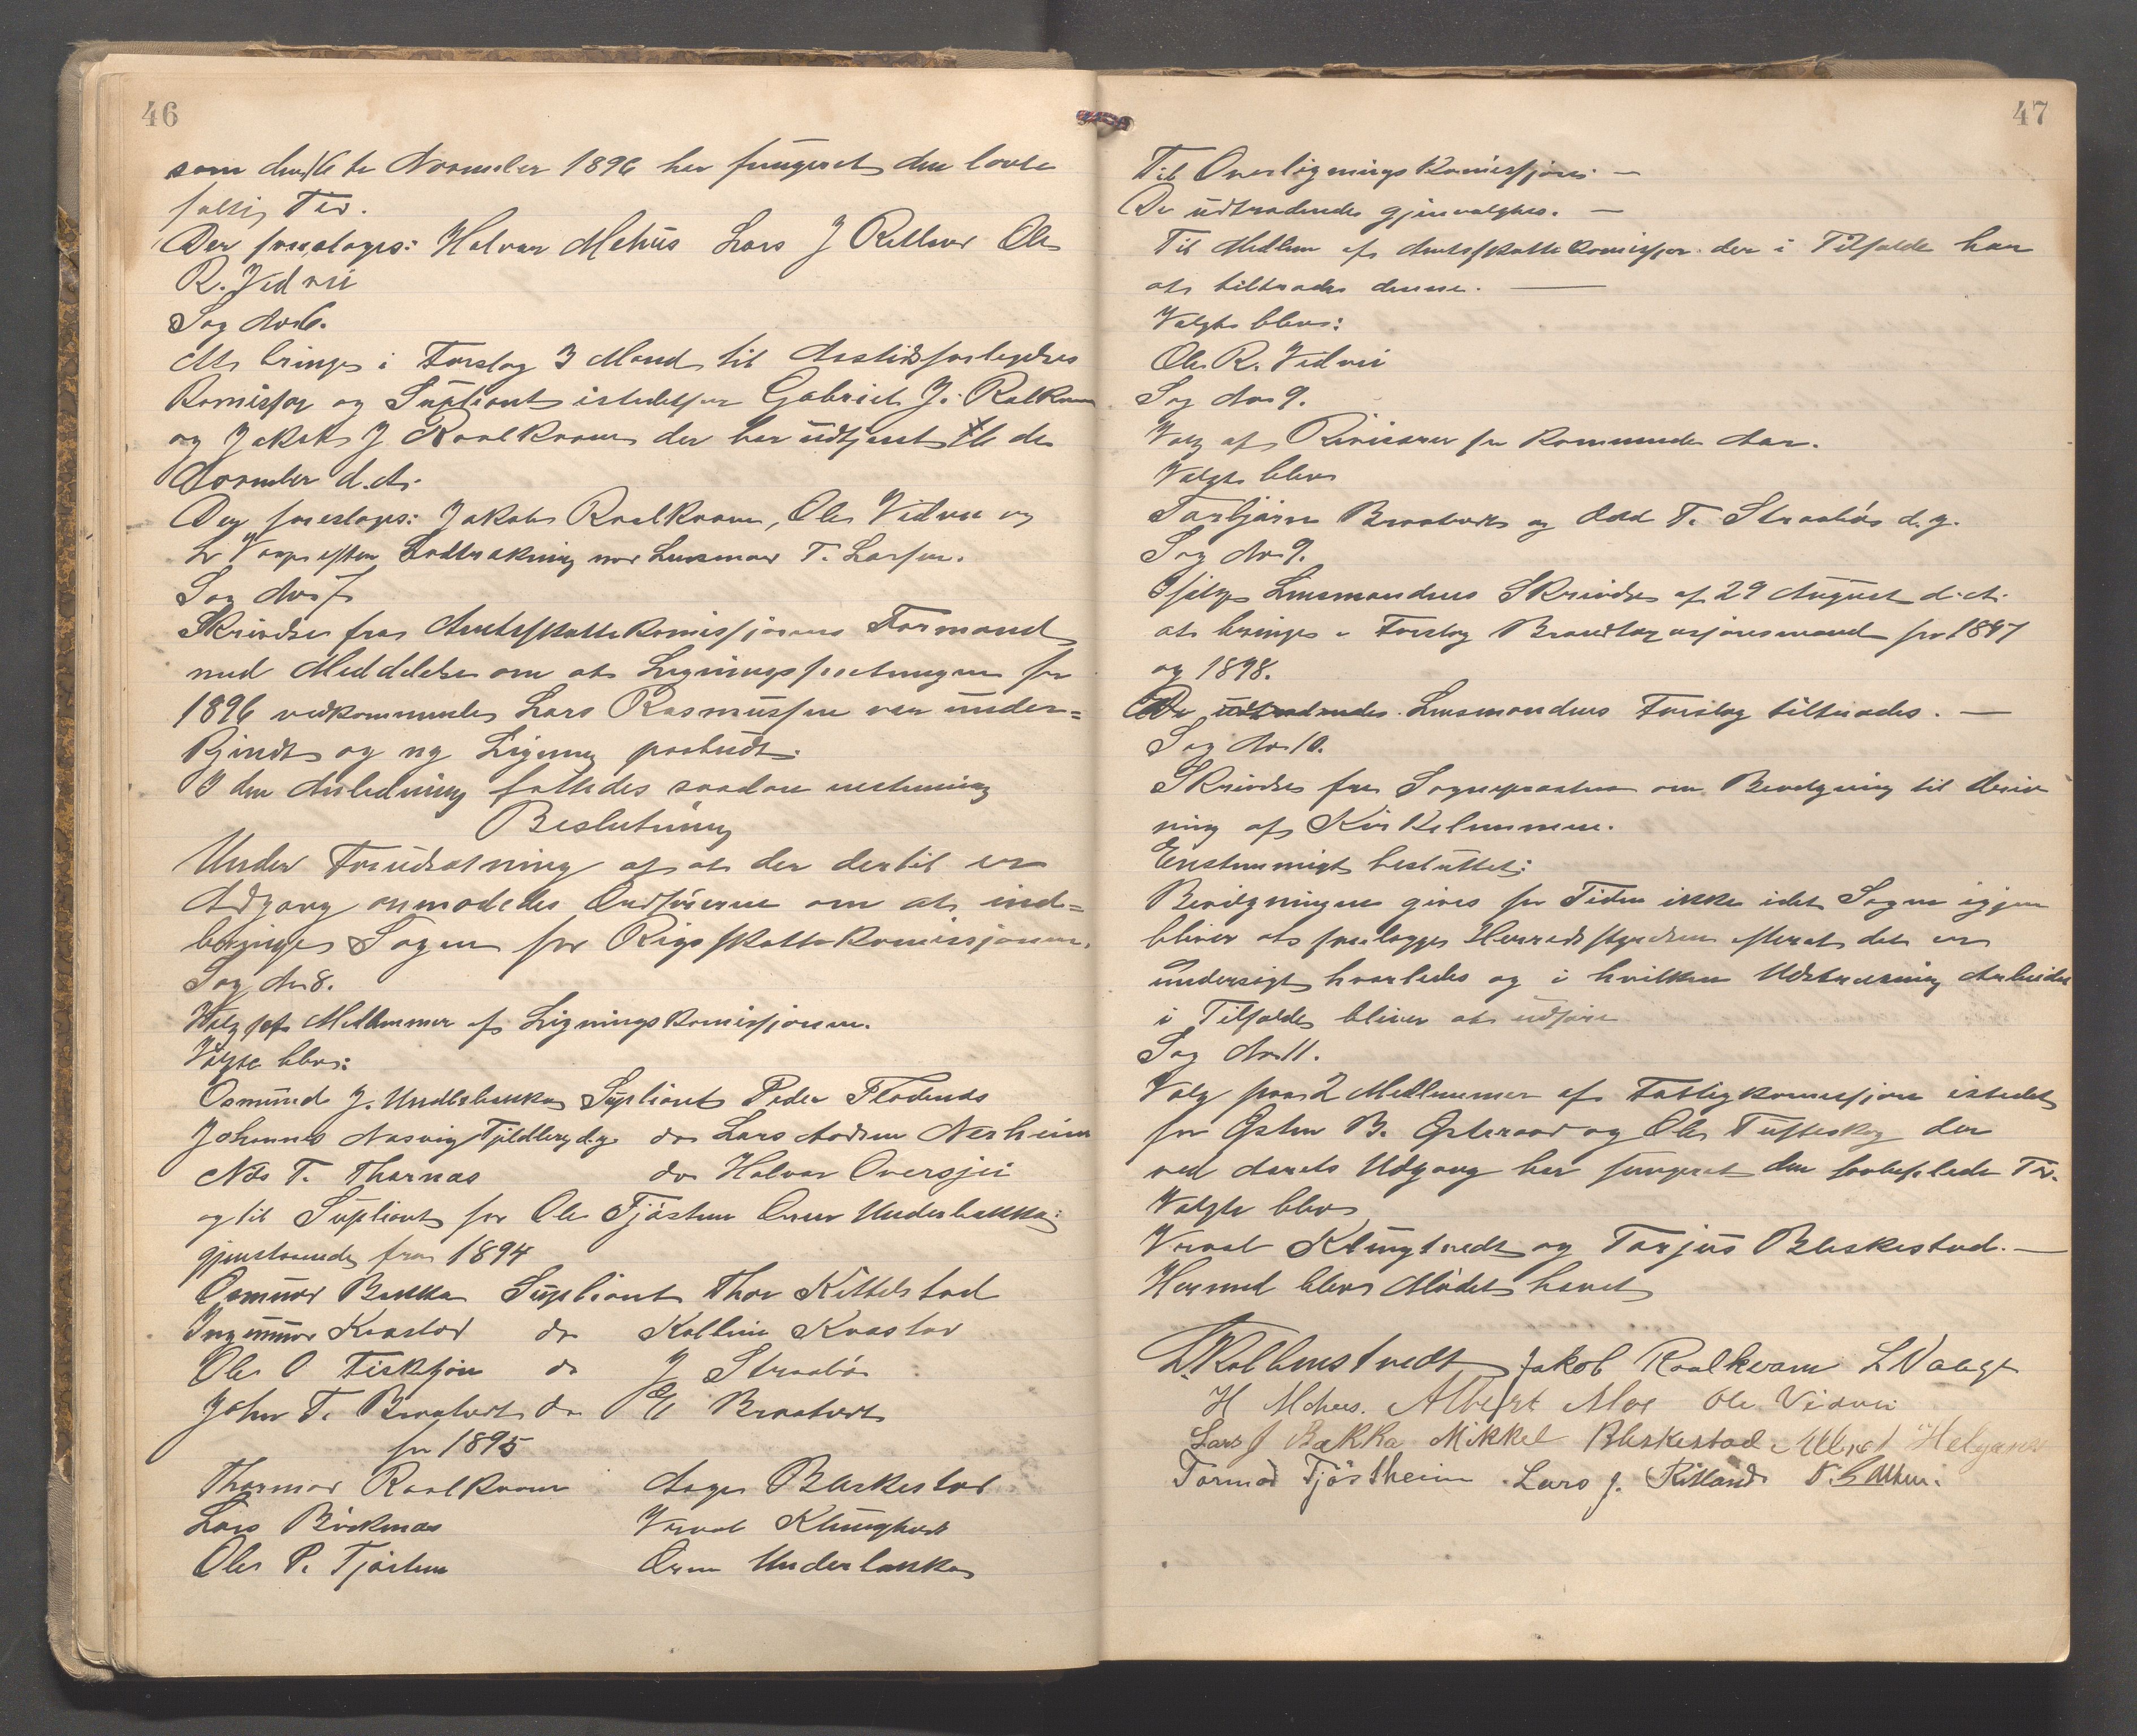 46
som den 16 de November 1896 har fungeret den lovbe
falte Tid.
Der foreslages: Halvar Mehus Lars J Ritland Ole
R. Vidvei
Sag No 6.
At bringe i Forslag 3 Mænd til
Komissjon og Supliant istedetfor Gabriel J. Ralkvam
og Jakob J Raalkvam der har udtjent 16 de
November d. A.
Der foreslages: Jakob Raalkvam, Ole Vidvei og
L Vaage efter Lodtrækning mod Lensmand T. Larsen.
Sag No 7
Skrivelse fra Amtsskattekomissjonens Formand
med Meddelelse om at Ligningsfor
1896 vedkommende Lars Rasmussen var under=
kjendt og ny Ligning paabudt.
I den Anledning fattedes saadan enstemmig
Beslutning
Under Forudsætning af at der dertil er
Adgang anmodedes Ordføreren om at ind=
bringe Sagen for Rigsskattekomissjonen.
Sag No 8.
Valg paa Medlemmer af Ligningskomissjonen.
Valgte blev:
Osmund J. Underbakka Supliant Peder Flodenes
Johannes Nasvig Tjeldberg d.y. do Lars Aadsen Nerheim
Nils T. Tharnas do Halvar Oversjei
og til Supliant for Ole Tjøstem Orm Underbakka:
gjenstaaende fra 1894
Osmund Bakka Supliant Thor Kittelstad
Ingemund Kvastad do Kolbein Kvastad
Ole O Fiskekjøn do J Straabø
John T. Braatveit do E Braatveit
for 1895
Thormod Raalkvam Aage Blaskestad
Lars Birkenæs Vraal Klungtveit
Ole P. Tjøstem Orm Underbakka
47
Til Overligningskomissjon —
De udtrædende gjenvalgtes. —
Til Medlem af Amtsskattekomissjon der i Tilfælde har
at tiltræde denne. —
Valgt blev:
Ole R. Vidvei
Sag No 9.
Valg af Revisorer for kommende Aar.
Valgte blev
Torbjørn Braatveit og Odd T. Straabø d.y.
Sag No 9.
Ifølge Lensmandens Skrivelse af 29 August d. A.
at bringe i Forslag Brandtaxasjonsmænd for 1897
og 1898.
De udtrædendes Lensmandens Forslag tiltrædes. —
Sag No 10.
Skrivelse fra Sognepresten om Bevilgning til
ning af Kirkelemmene.
Enstemmigt besluttet:
Bevilgningen gives for Tiden ikke idet Sagen igjen
bliver at forelægge Herredsstyrelsen efterat det er
undersøgt hvorledes og i hvilken Udstrækning Arbeidet
i Tilfælde bliver at udføre
Sag No 11.
Valg paa 2 Medlemmer af Fattigkomissjon istedet
for Østen B. Østeraad og Ole Tufteskog der
ved Aarets Udgang har fungeret den lovbefalede Tid.
Valgte blev
Vraal Klungtvedt og Tarjus Bleskestad. —
Hermed blev Mødet hævet
Kolbenstvedt Jakob Raalkvam L Vaage
H Mehus. Albert Moe Ole Vidvei
Lars J Bakka Mikkel Bleskestad Albret Helganes
Tormod Tjøstheim Lars J. Ritland